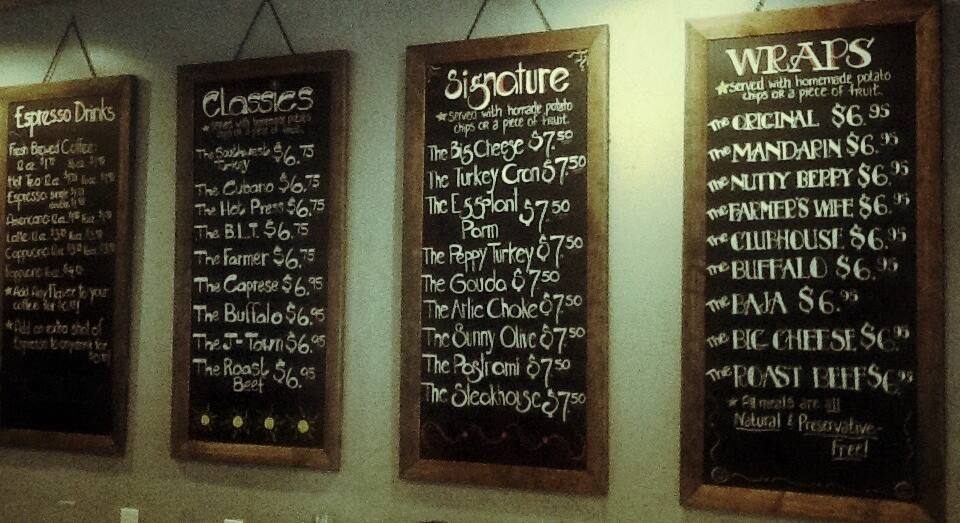 Espresso Drinks
Fresh Brewed Coffee:
12 oz.
Hot Tea 12 oz.
Espresso: single
double
Americano: 12 oz.
Latte: 12 oz.
Cappuccino: 12 oz.
★Add Any flavor to your
coffee for
★Add an extra shot of
Espresso to any drink for
Classics
★served with homemade potato
chips or a piece of fruit.
The Southwest $6.75
Turkey
The Cubano $6.75
The Hot Press $6.75
The B.L.T. $6.75
The Farmer $6.75
The Caprese $6.95
The Buffalo $6.95
The J-Town $6.95
The Roast $6.95
Beef
Signature
★served with homade potato
chips OR a piece of fruit.
The Big Cheese $7.50
The Turkey Cran $7.50
The Eggplant $7.50
Parm
The Peppy Turkey $7.50
The Gouda $7.50
The Artic Choke $7.50
The Sunny Olive $7.50
The Pastrami $7.50
The Steakhouse $7.50
WRAPS
★served with homemade potato
chips OR a piece of fruit.
The ORIGINAL $6.95
The MANDARIN $6.95
The NUTTY BERRY $6.95
The FARMER'S WIFE $6.95
The CLUBHOUSE $6.95
The BUFFALO $6.95
The BAJA $6.95
The BIG CHEESE $6.95
The ROAST BEEF $6.95
★ All meats are all
Natural & Preservative-
Free!